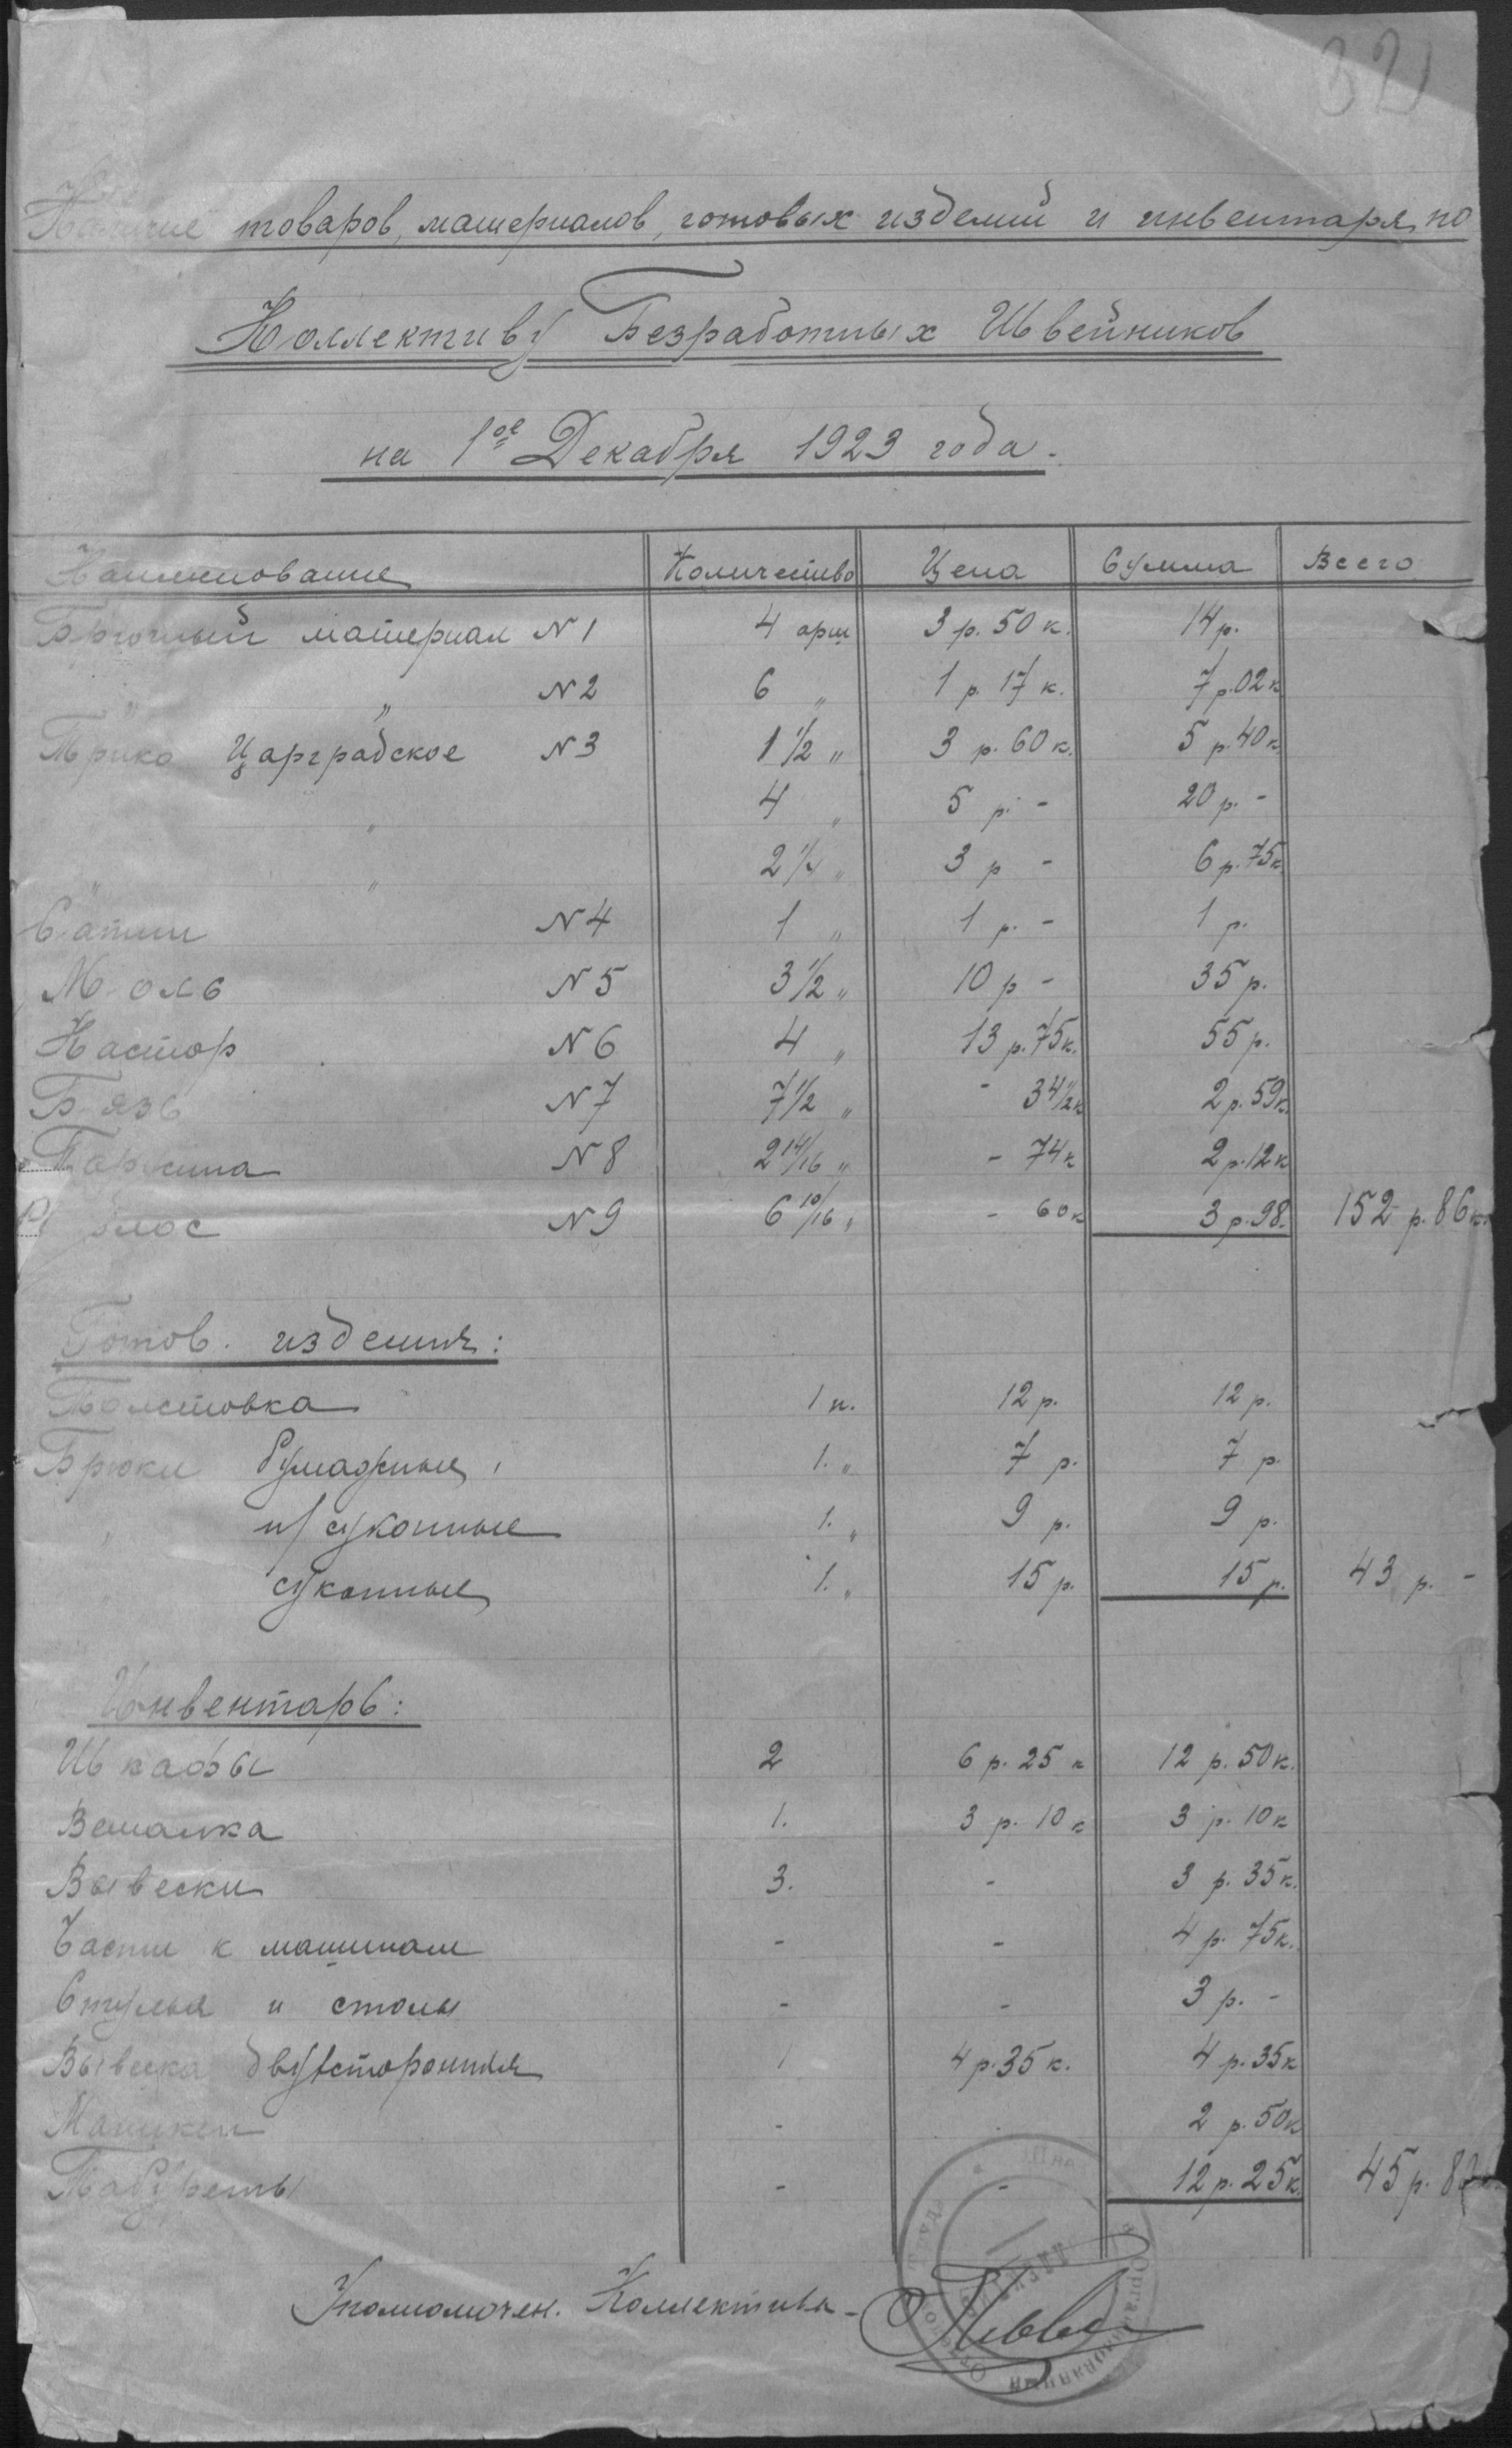 32
Наличие товаров, материалов, готовых изделий и инвентаря по
Коллективу Безработных Швейников
на 1ое Декабря 1923 года.
Наименование Количество Цена Сумма Всего
Брючный материал N1 4 арш 3 р. 50 к. 14 р.
„ „ N2 6 „ 1 р. 17 к. 7 р. 02 к
Трико Цареградское N3 1 1/2 „ 3 р. 60 к. 5 р. 40 к
„ 4 „ 5 р. - 20 р. -
„ „ 2 1/4 „ 3 р - 6 р. 75 к
Сатин N4 1 „ 1 р. - 1 р.
N5 3 1/2 „ 10 р - 35 р.
Кастор N6 4 „ 13 р. 75 к. 55 р.
Бязь N7 7 1/2 „ - 34 1/2 к 2 р. 59 к.
N8 2 14/16 „ - 74 к 2 р. 12 к
N9 6 10/16 „ - 60 к 3 р. 98. 152 р. 86 к.
Готов. изделия:
Толстовка 1 п. 12 р. 12 р.
Брюки бумажные, 1. „ 7 р. 7 р.
„ п/суконные 1. „ 9 р. 9 р.
суконные 1. „ 15 р. 15 р. 43 р. -
Инвентарь:
Шкафы 2 6 р. 25 к 12 р. 50 к.
Вешалка 1. 3 р. 10 к 3 р. 10 к
Вывески 3. - 3 р. 35 к.
Части к машинам - - 4 р. 75 к.
Стулья и столы - - 3 р. -
Вывеска двухсторонняя 1 4 р. 35 к. 4 р. 35 к
Манекен - 2 р. 50 к
Табуреты - - 12 р. 25 к. 45 р.
Уполномочен. Коллектива -